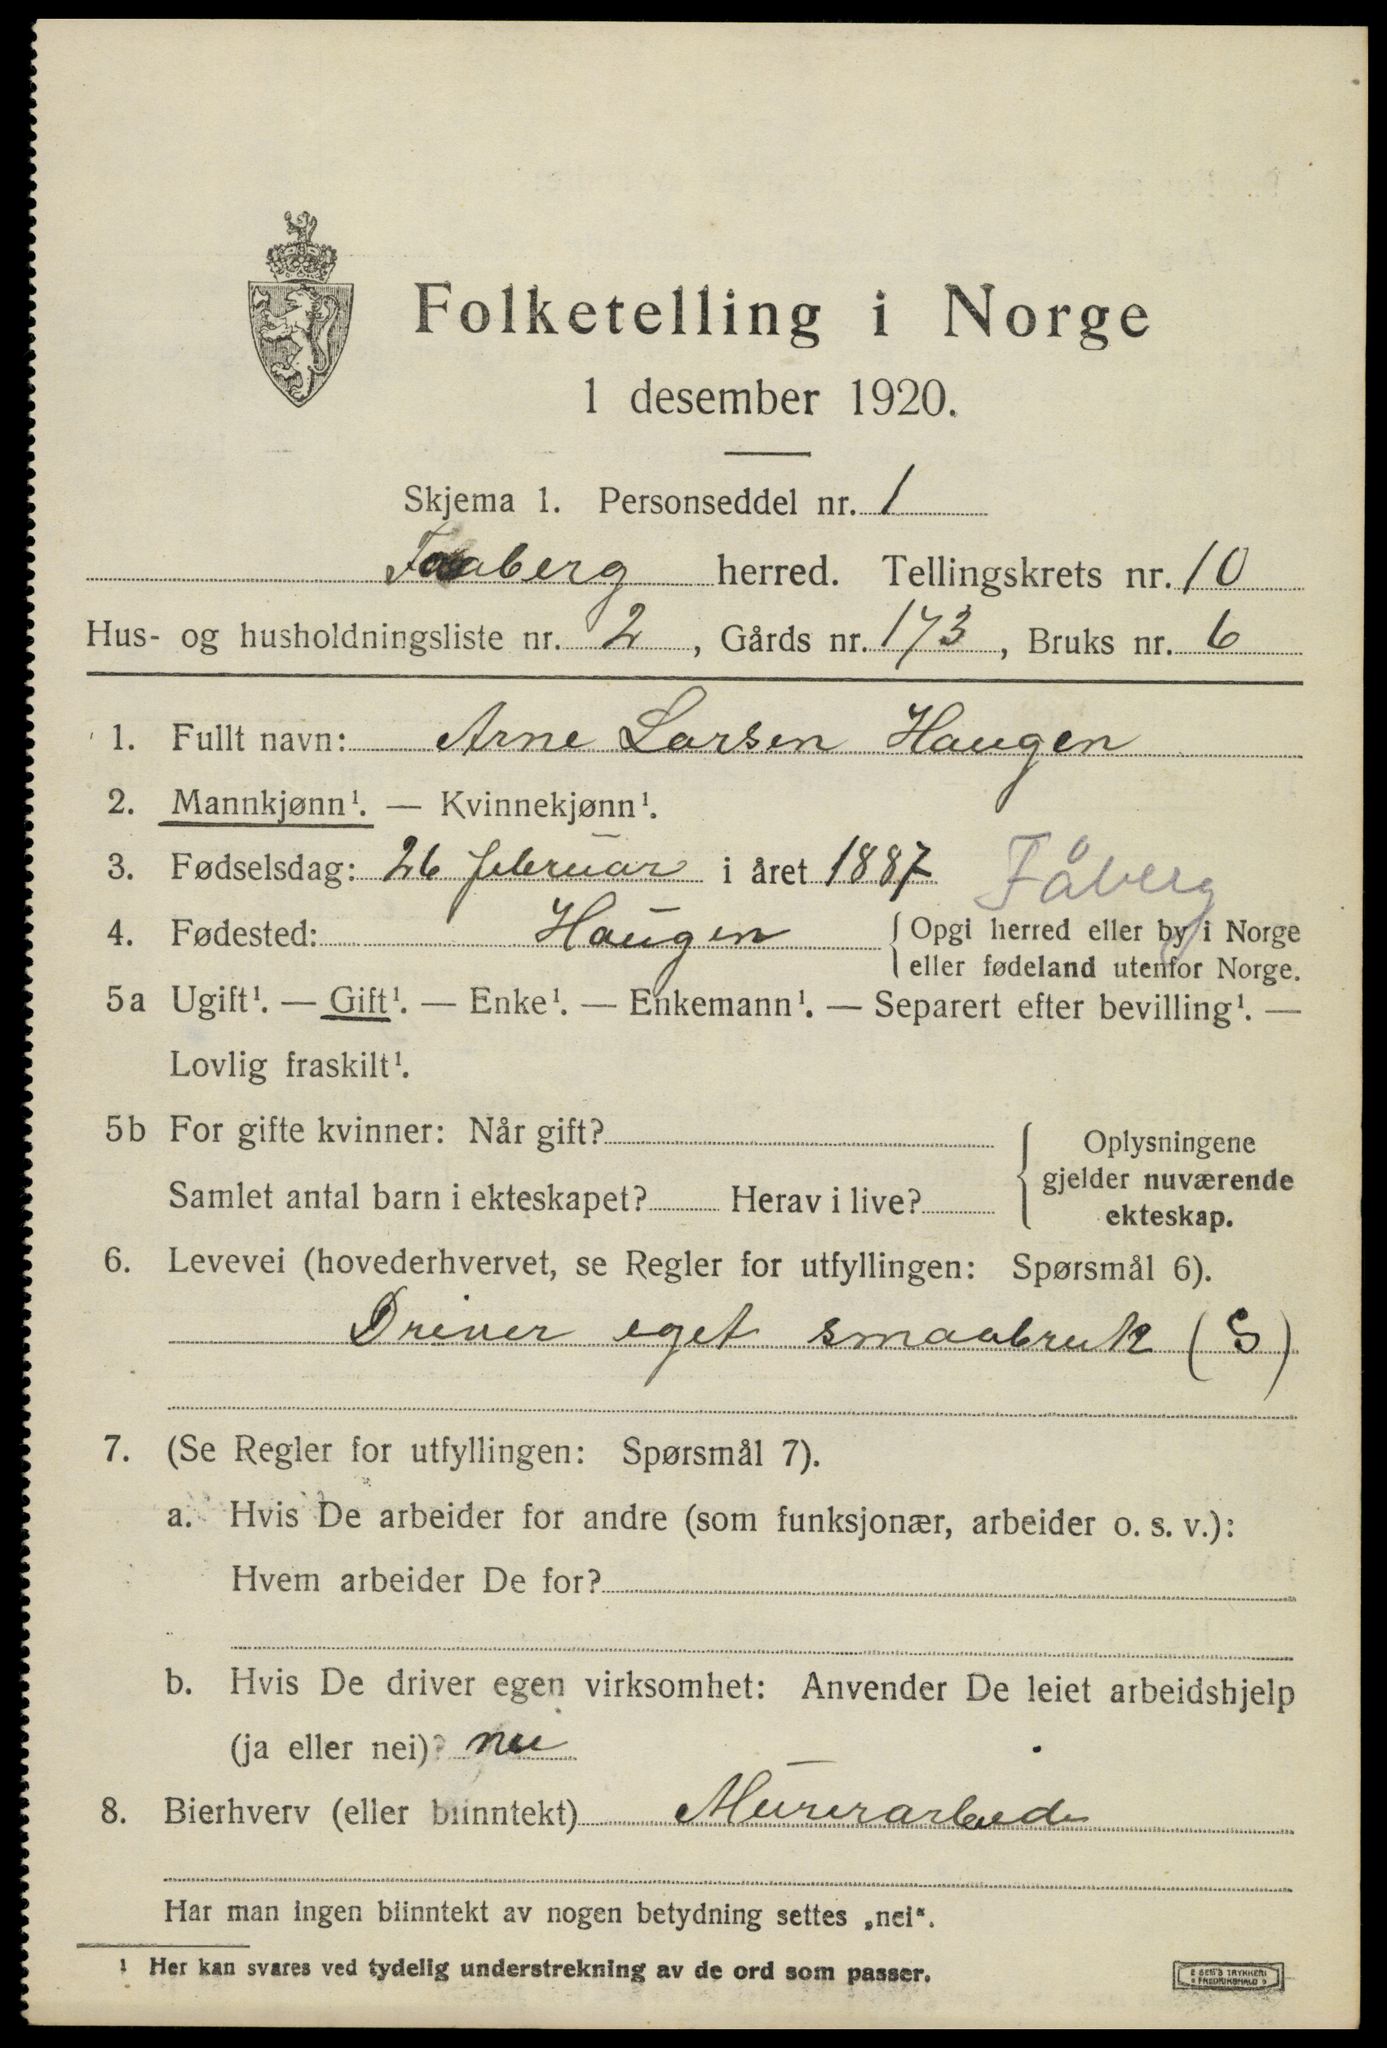 Folketelling i Norge
1 desember 1920.
Skjema 1. Personseddel nr. 1
Faaberg herred. Tellingskrets nr. 10
Hus- og husholdningsliste nr. 2, Gårds nr. 173, Bruks nr. 6
1. Fullt navn: Arne Larsen Haugen
2. Mannkjønn¹. — Kvinnekjønn¹.
3. Fødselsdag: 26 februar i året 1887 Fåberg
4. Fødested: Haugen { Opgi herred eller by i Norge
eller fødeland utenfor Norge.
5a Ugift¹. — Gift¹. — Enke¹. — Enkemann¹. — Separert efter bevilling¹. —
Lovlig fraskilt¹.
5b For gifte kvinner: Når gift? { Oplysningene
gjelder nuværende
Samlet antal barn i ekteskapet? Herav i live? ekteskap.
6. Levevei (hovederhvervet, se Regler for utfyllingen: Spørsmål 6).
Driver eget smaabruk (S)
7. (Se Regler for utfyllingen: Spørsmål 7).
a. Hvis De arbeider for andre (som funksjonær, arbeider o. s. v.):
Hvem arbeider De for?
b. Hvis De driver egen virksomhet: Anvender De leiet arbeidshjelp
(ja eller nei)? nei
8. Bierhverv (eller biinntekt) Murerarbeide
Har man ingen biinntekt av nogen betydning settes „nei“.
¹ Her kan svares ved tydelig understrekning av de ord som passer.
E SEM'S TRYKKERI
FREDRIKSHALD